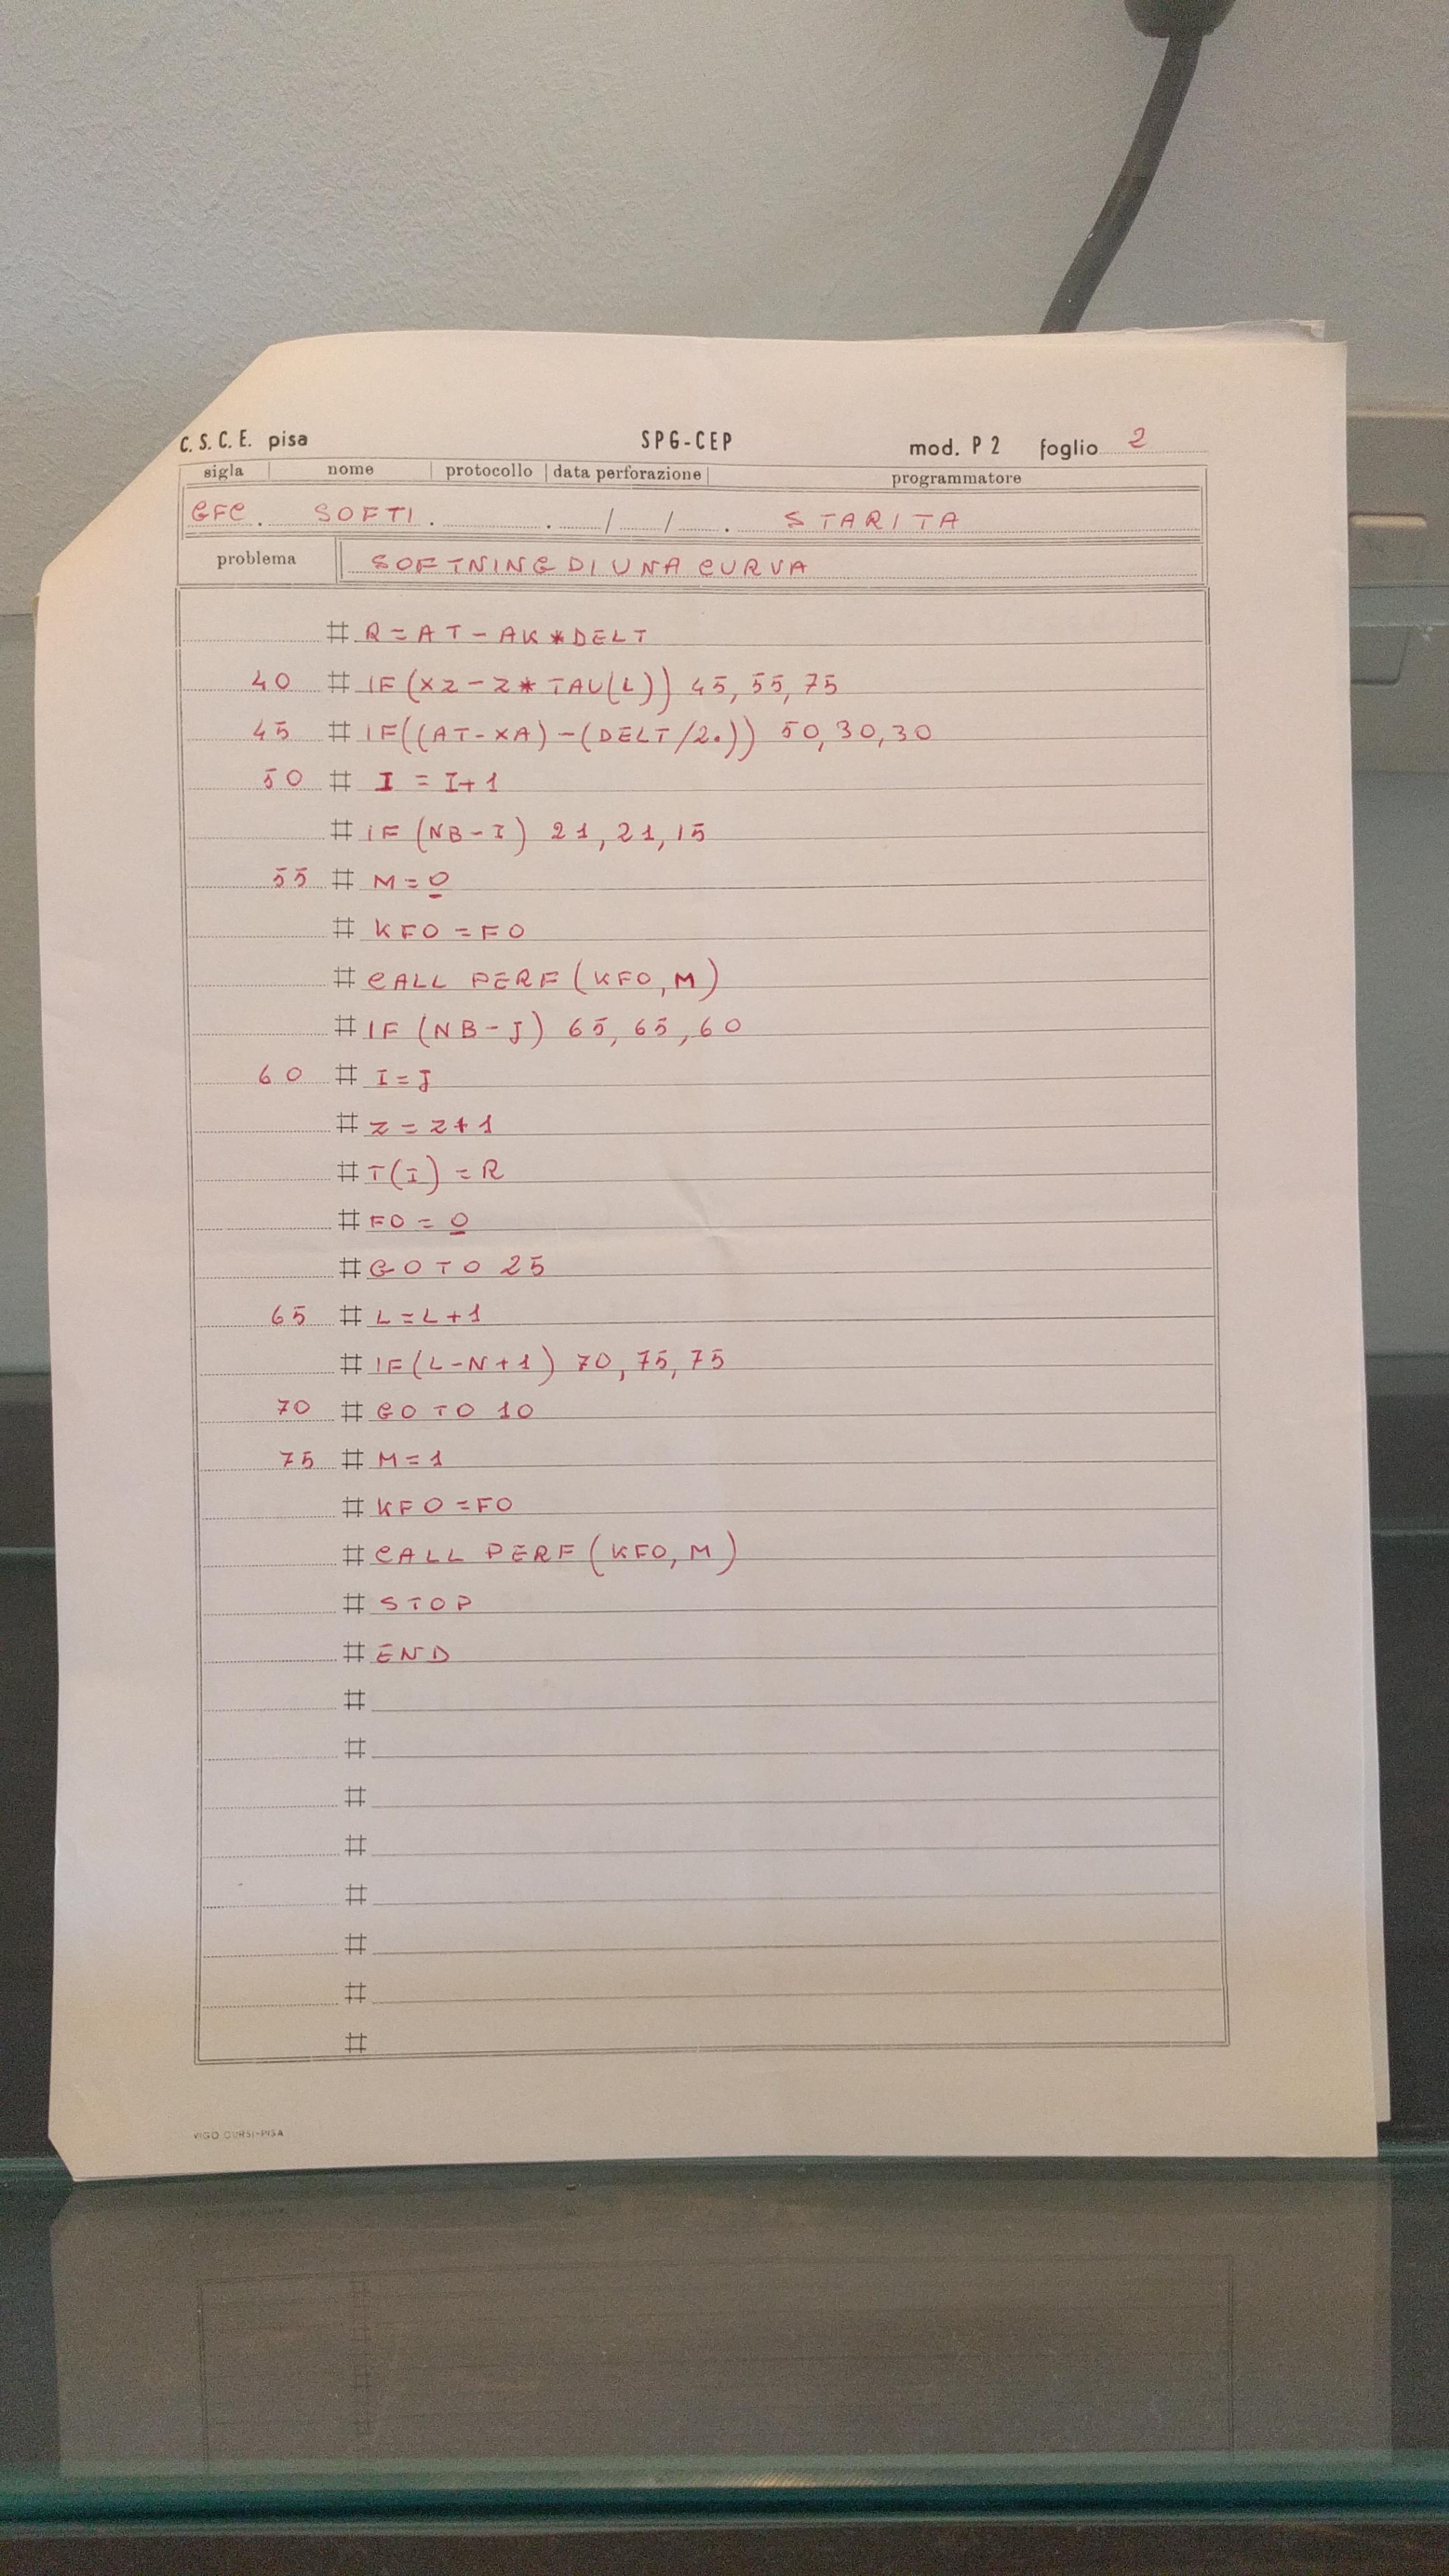 C. S. C. E. pisa SPG-CEP mod. P 2 foglio 2
sigla nome protocollo data perforazione programmatore
GFC. SOFTI. . / / . STARITA
problema SOFTNING DI UNA CURVA
# R=AT-AK*DELT
40 # IF(XZ-Z*TAU(L)) 45, 55, 75
45 # IF((AT-XA)-(DELT/2.)) 50,30,30
50 # I = I+1
# IF (NB-I) 21, 21, 15
55 # M=0
# KFO=FO
# CALL PERF (KFO, M)
# IF (NB-J) 65, 65, 60
60 # I=J
# Z=Z+1
# T(I) = R
# FO = 0
# GO TO 25
65 # L=L+1
# IF(L-N+1) 70, 75, 75
70 # GO TO 10
75 # M=1
# KFO=FO
# CALL PERF (KFO, M)
# STOP
# END
#
#
#
#
#
#
#
#
VIGO CURSI-PISA